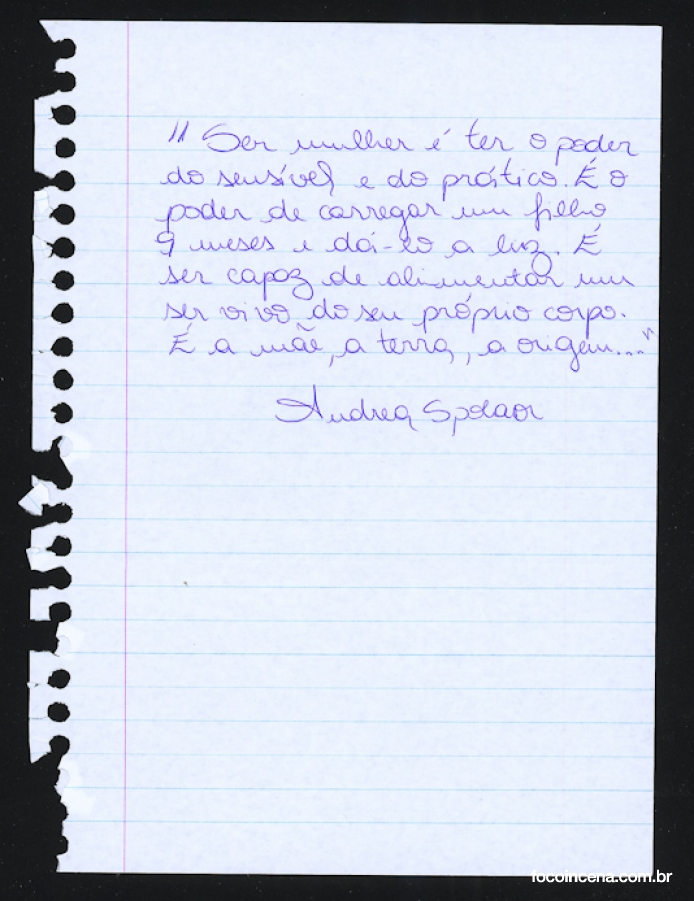 " Ser mulher é ter o poder
do sensível e do prático. É o
poder de carregar um filho
9 meses e dá-lo a luz. É
ser capaz de alimentar um
ser vivo do seu próprio corpo.
É a mãe, a terra, a origem..."
Andrea Spolaor
focoincena.com.br